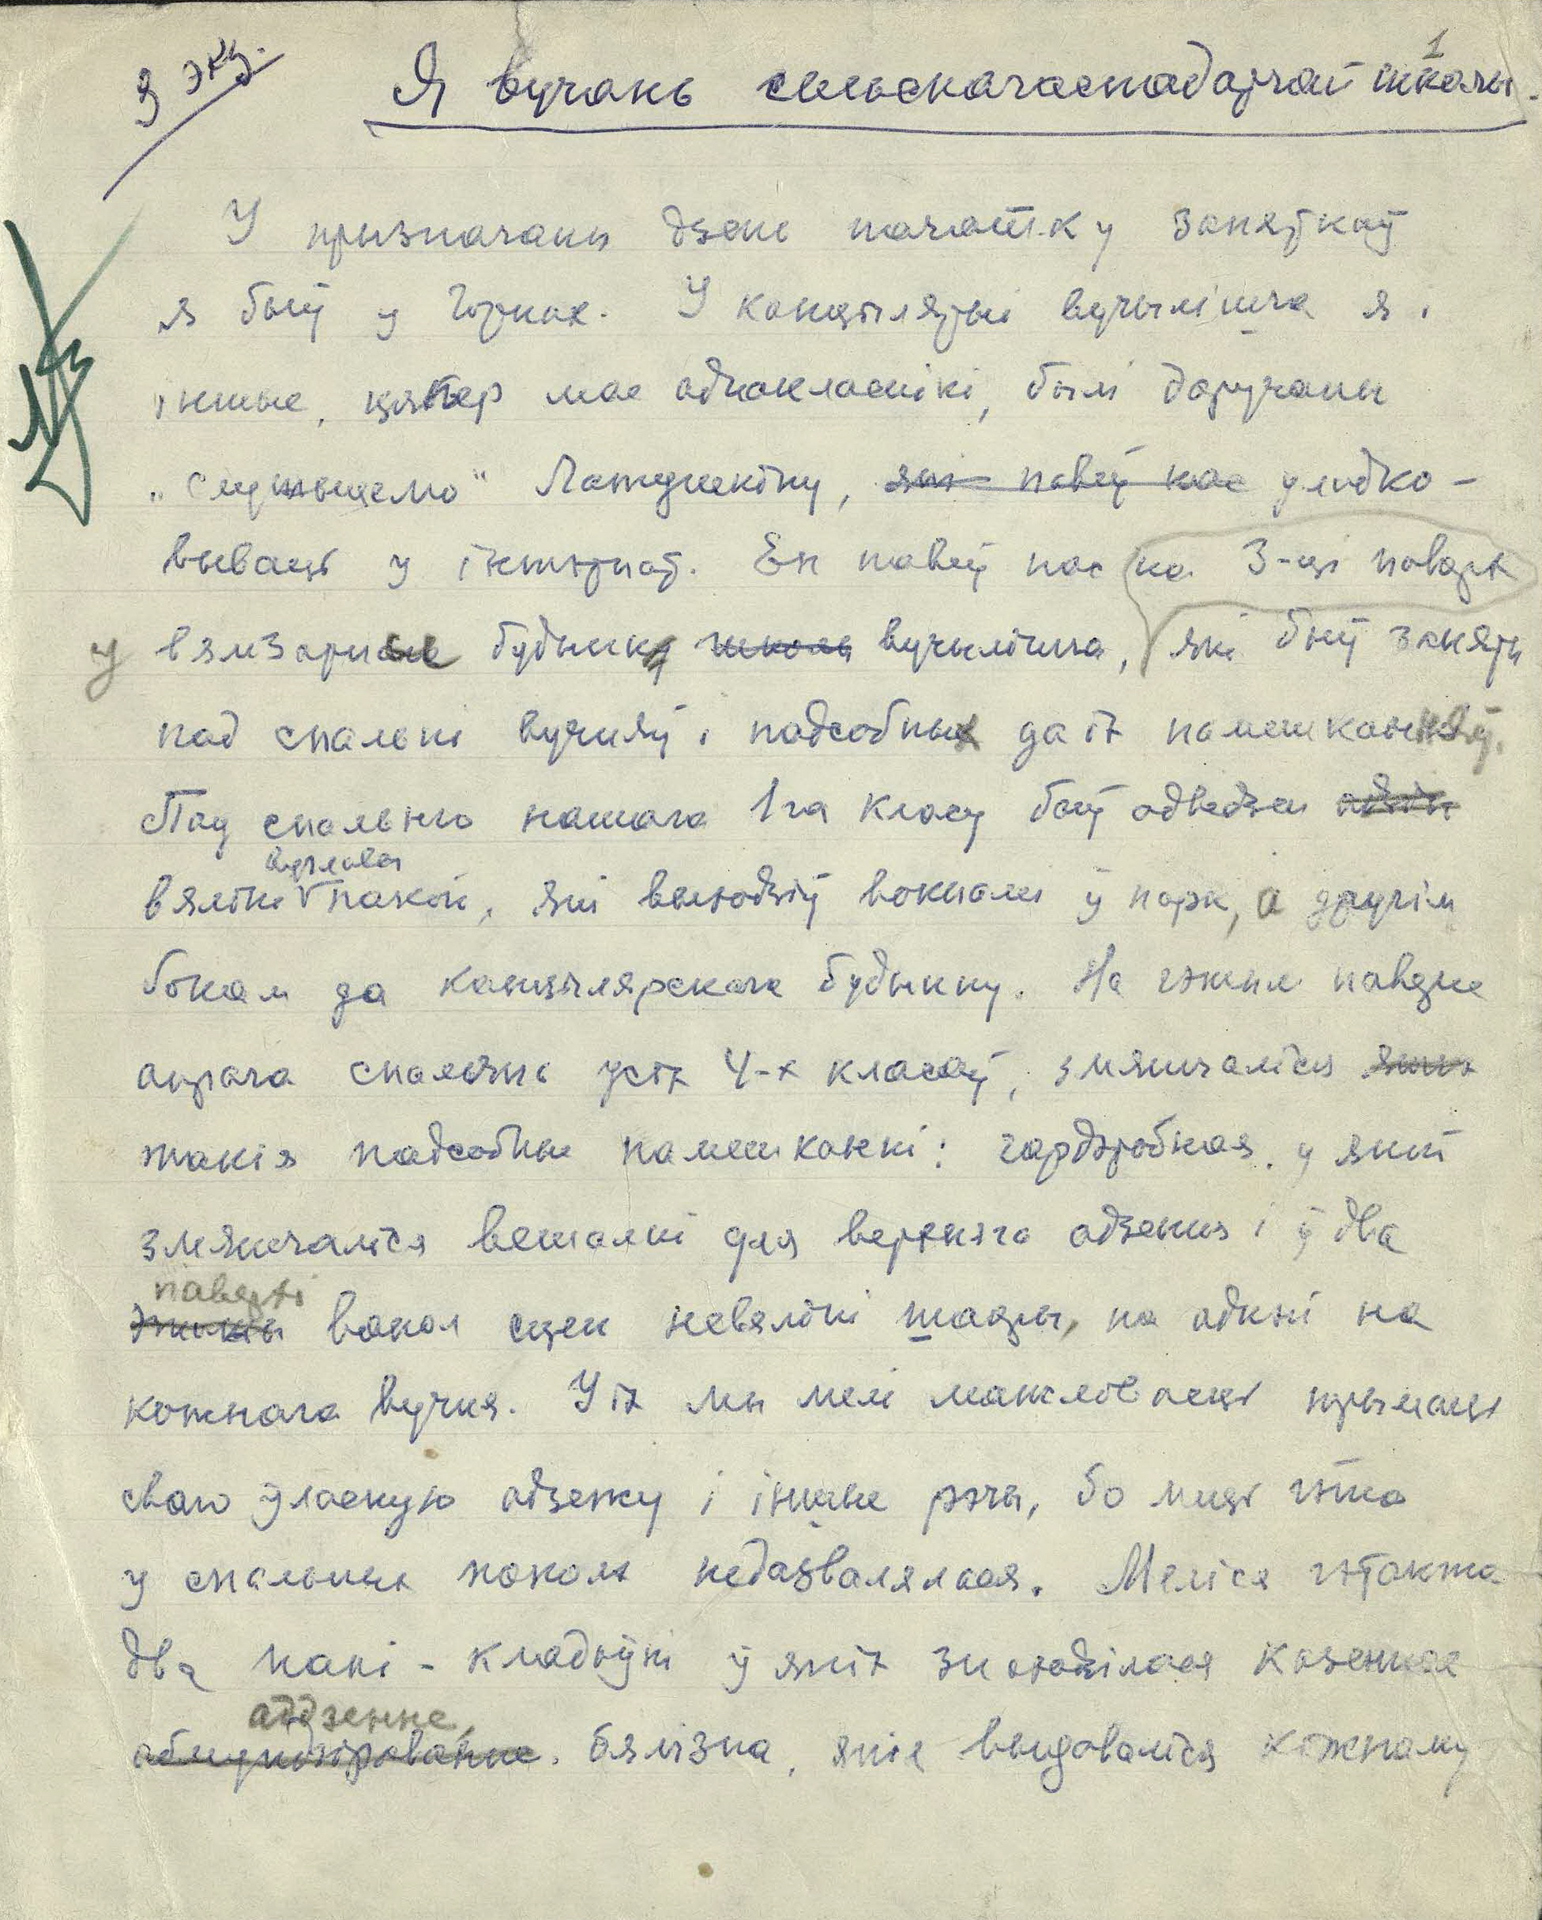 1
3 экз.
Я вучань сельскагаспадарчай школы.
У прызначаны дзень пачатку заняткаў
я быў у Горках. У канцылярыі вучылішча я і
іншые, цяпер мае аднакласнікі, былі даручаны
„служыцелю“ Латушкіну, які павёў нас уладко-
вываць у інтэрнат. Ён павёў нас на 3-ці паверх
у вялізарны будынку школы вучылішча, які быў заняты
пад спальні вучняў і падсобных да іх памешканняў.
Пад спальню нашага 1га класу быў адведзен адзін
вуглавы
вялікі пакой, які выходзіў вокнамі ў парк, а другім
бокам да канцылярскага будынку. На гэтым паверсе
апрача спальняў усіх 4-х класаў, змяшчаліся
такія падсобные памешканні: гардэробная, у якой
змяшчаліся вешалкі для верхняга адзення і ў два
паверхі
вакол сцен невялікі шафы, па аднэй на
кожнага вучня. У іх мы мелі магчымасць трымаць
сваю ўласную адзежу і іншые рэчы, бо мець гэта
у спальных пакоях недазвалялася. Меліся гэтакжа
два пакі - кладоўкі ў якіх знаходзілася казеннае
адзенне,
абмундзіраванне. бялізна, якіе выдаваліся кожнаму